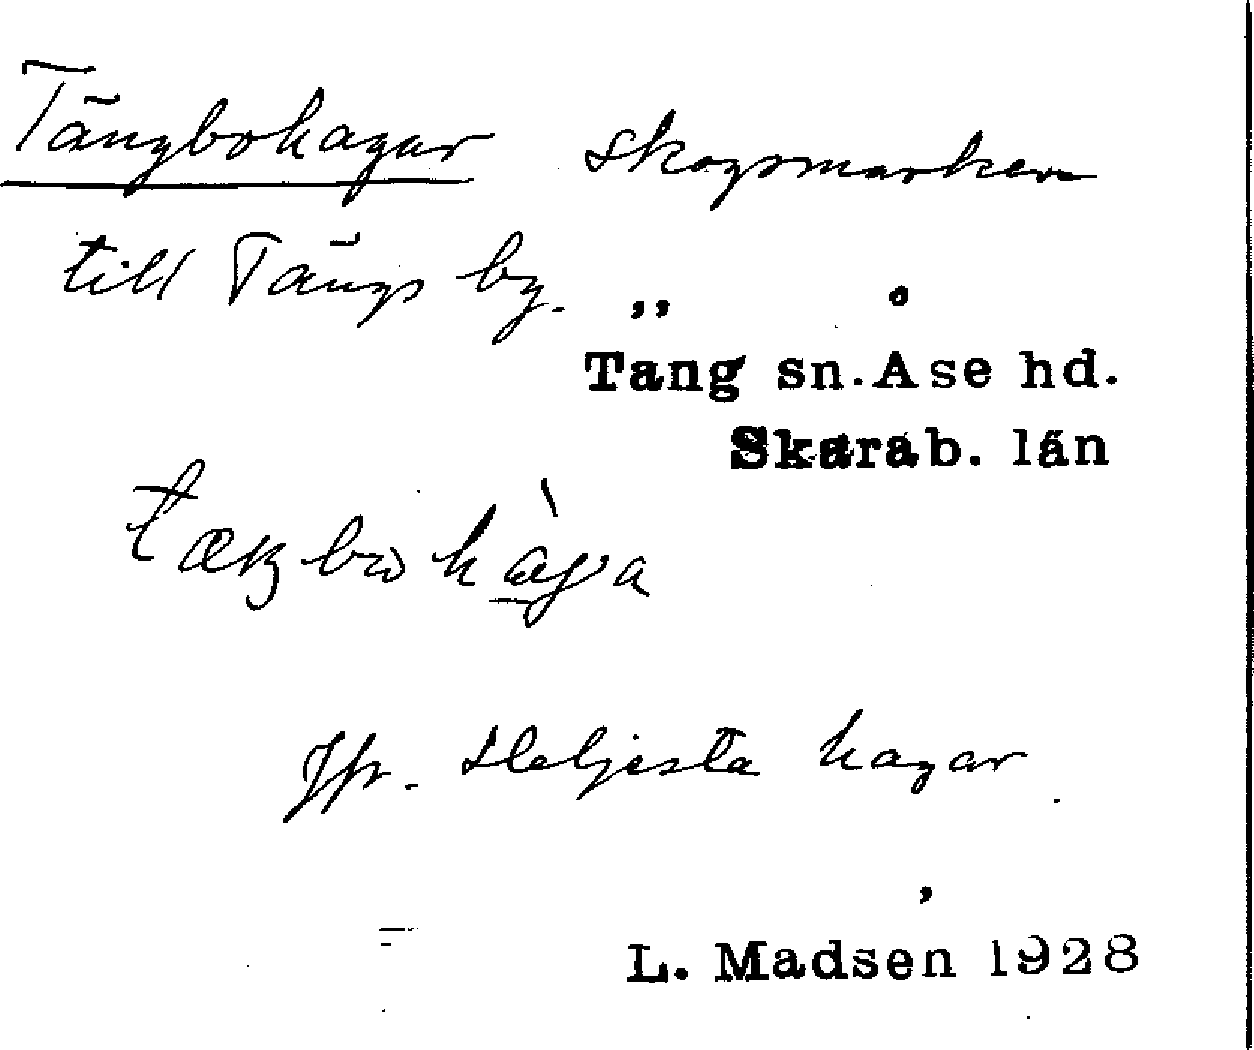 Tängbohagar skogsmarken
till Tängs by.
Täng sn. Åse hd.
Skarab. län
tæŋbωhà̱ga
Jfr. Slaljesta hagar
L. Madsén 1928